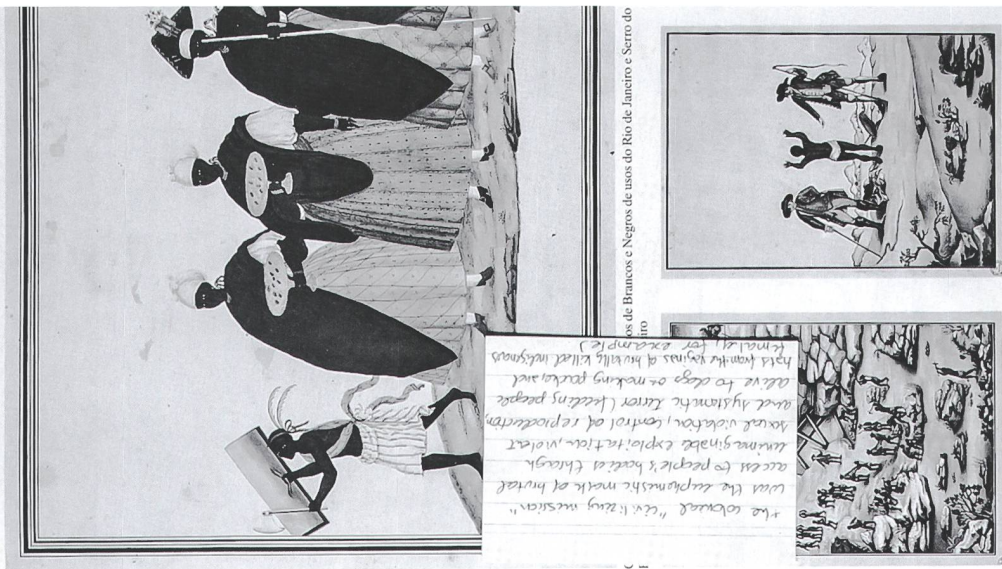 os de Brancos e Negros de usos do Rio de Janeiro e Serro do
iro
the colonial "civilizing mission"
was the euphemistic mask of brutal
access to people's bodies through
unimaginable exploitation, violent
sexual violation, control of reproduction,
and systematic terror (feeding people
alive to dogs or making pouches and
hats from the vaginas of brutally killed indigenous
females, for example)